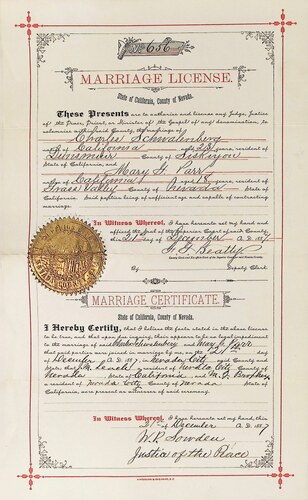 No. 656
MARRIAGE LICENSE.
State of California, County of Nevada.
These Presents are to authorize and license any Judge, Justice
of the Peace, Priest, or Minister of the Gospel of any denomination, to
solemnize within said County, the marriage of
Charles Schwalenberg
of California aged 23 years, resident of
Dunsmuir County of Siskiyou
State of California, and
Mary G. Parr
native of California aged 18 years, resident of
Grass Valley County of Nevada State of
California. Said parties being of sufficient age and capable of contracting
marriage.
In Witness Whereof, I have hereunto set my hand and
affixed the seal of the Superior Court of said County
this 21st day of December A. D. 1887
Clerk
By Deputy Clerk.
MARRIAGE CERTIFICATE.
State of California, County of Nevada.
I Hereby Certify, that I believe the facts stated in the above license
to be true, and that upon due inquiry, there appears to be no legal impediment
to the marriage of said Charles Schwalenberg and Mary G. Parr
that said parties were joined in marriage by me, on the 21st day
of December A. D. 1887, in Nevada City said County and
State; that resident of Nevada City County of
Nevada State of California and
a resident of Nevada City County of Nevada State of
California, were present as witnesses of said ceremony.
In Witness Whereof, I have hereunto set my hand, this
21st December A. D. 1887
W. R. Sowden
Justice of the Peace